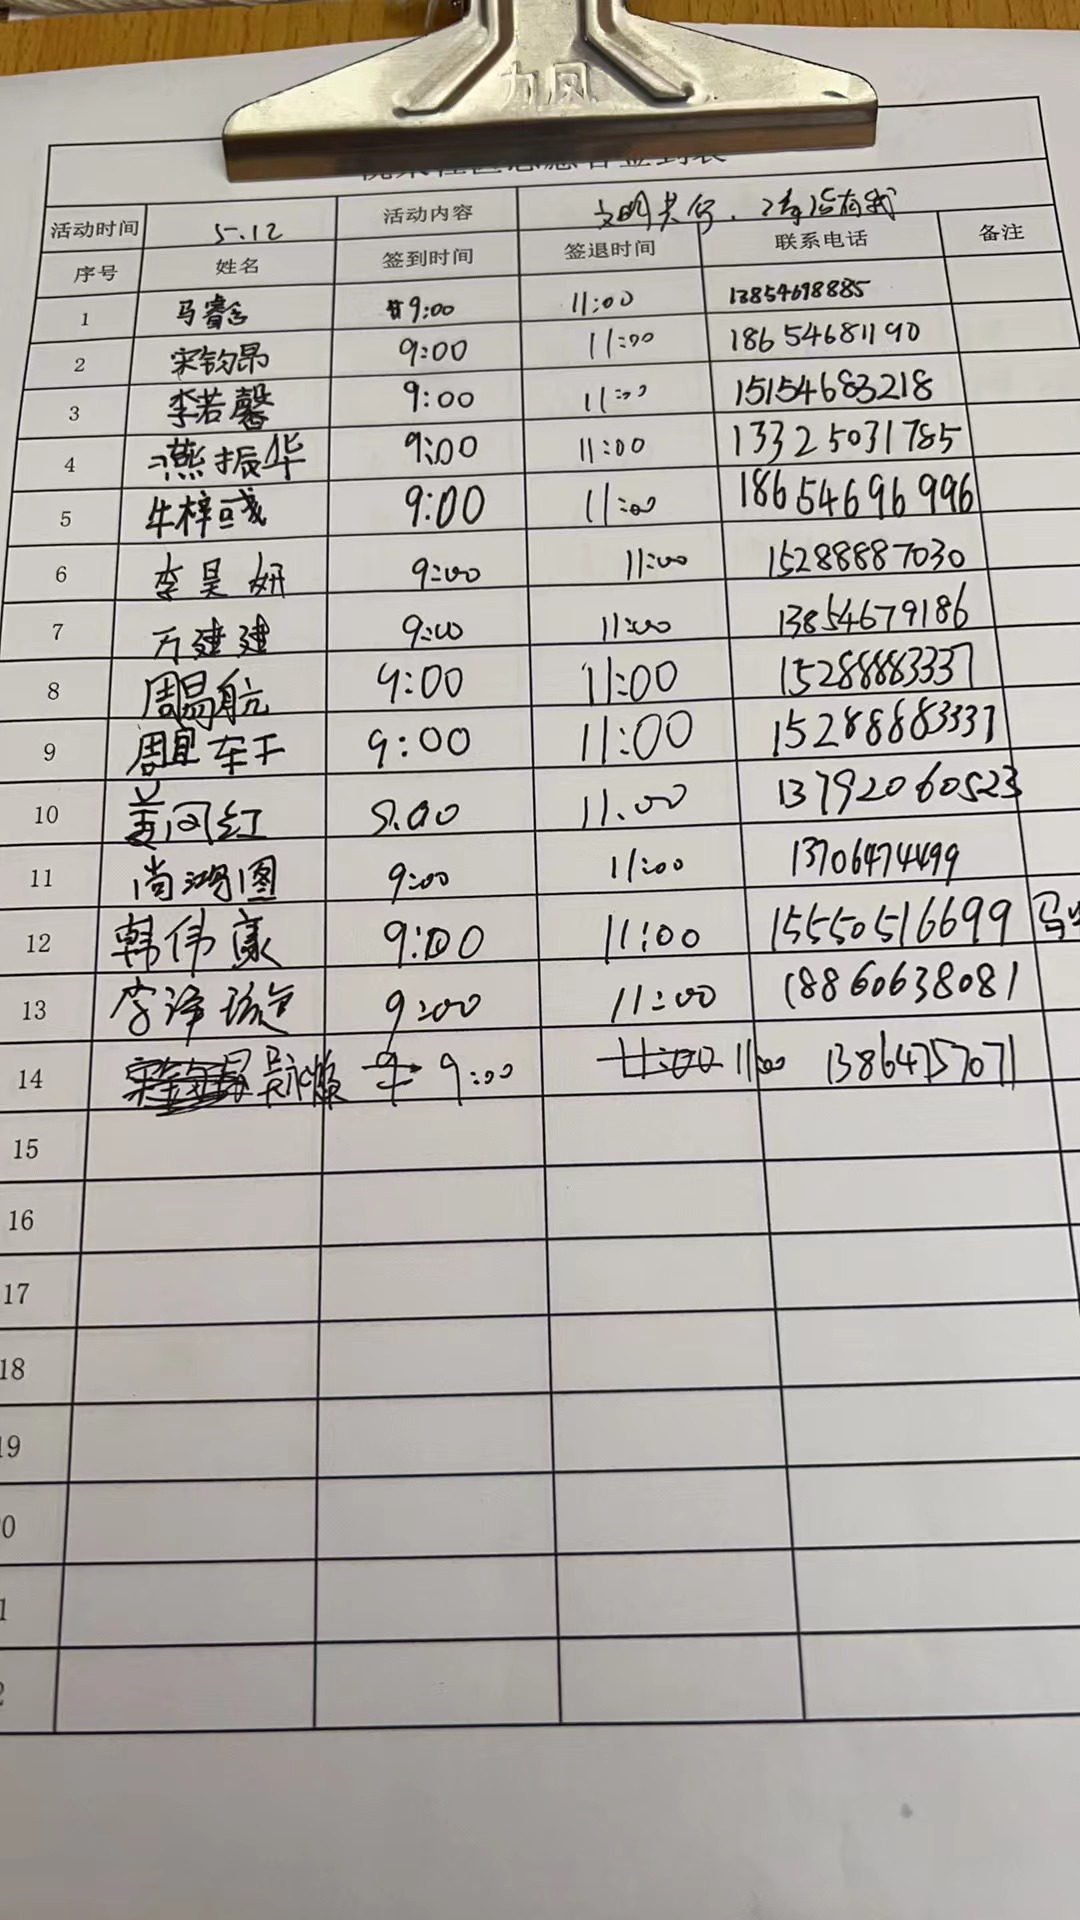 九风
活动时间 5.12 活动内容 文明共行、清洁有我
序号 姓名 签到时间 签退时间 联系电话 备注
1 马睿含 9:00 11:00 13854698885
2 宋钧昂 9:00 11:00 18654681190
3 李若馨 9:00 11:00 15154683218
4 燕振华 9:00 11:00 13325031785
5 牛梓彧 9:00 11:00 18654696996
6 李昊妍 9:00 11:00 15288887030
7 万建建 9:00 11:00 13854679186
8 周易航 9:00 11:00 15288883337
9 周宜 9:00 11:00 15288883337
10 姜闪红 9.00 11.00 13792060523
11 尚鸿图 9:00 11:00 13706474499
12 韩伟康 9:00 11:00 15550516699 马
13 李泽 9:00 11:00 18860638081
14 9:00 11:00 13864757071
15
16
17
18
19